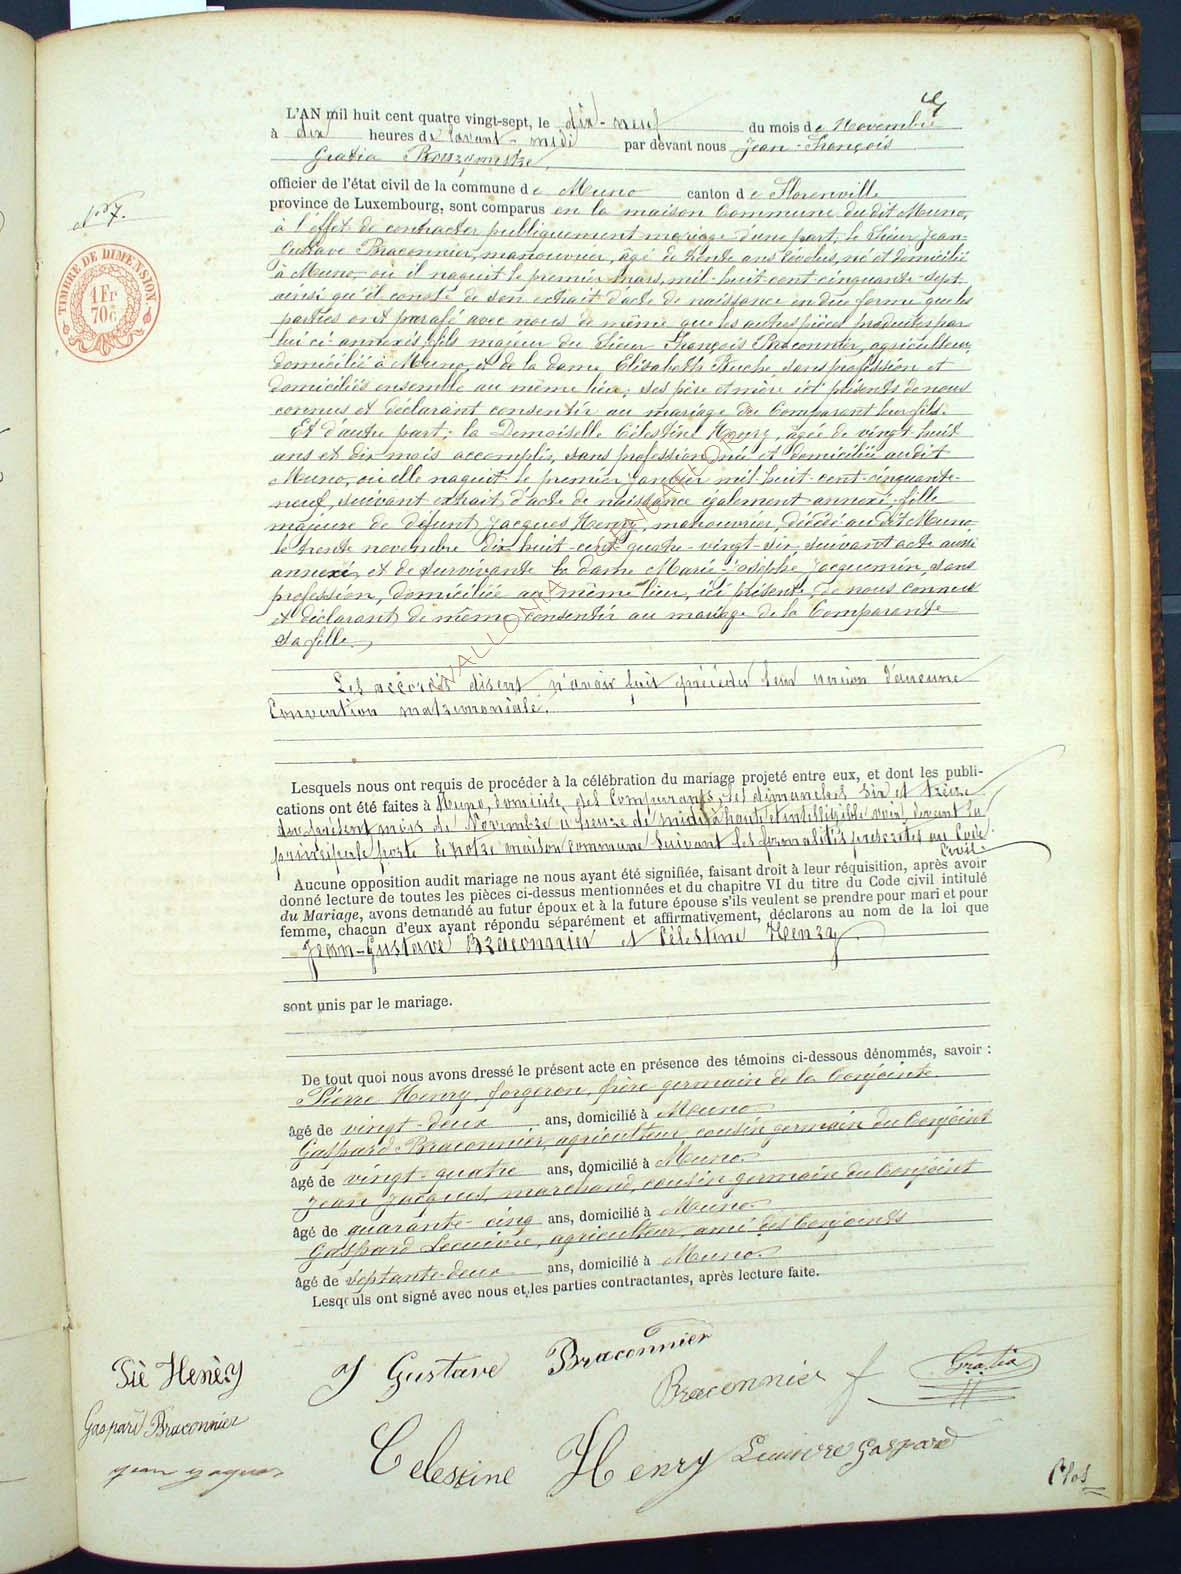 L'AN mil huit cent quatre vingt-sept, le dix-neuf du mois de Novembre
à dix heures de l'avant-midi par devant nous Jean-François
Gratia Bourgmestre
officier de l'état civil de la commune de Muno canton de Florenville
province de Luxembourg, sont comparus en la maison Commune du dit Muno,
N° 7.
TIMBRE DE DIMENSION
1 Fr
70 c
à l'effet de contracter publiquement mariage d'une part; le Sieur Jean-
Gustave Braconnier, manouvrier, âgé de trente ans révolus, né et domicilié
à Muno, où il naquit le premier mars, mil-huit-cent-cinquante-sept
ainsi qu'il conste de son extrait d'acte de naissance en due forme que les
parties ont parafé avec nous de même que les autres pièces produites par
lui ci-annexés, fils majeur du Sieur François Braconnier, agriculteur,
domicilié à Muno, et de la dame Elisabeth sans profession et
domiciliés ensemble au même lieu, ses père et mère ici présents de nous
connus et déclarant consentir au mariage du Comparant leur fils.
Et d'autre part; la Demoiselle Célestine Henry, âgée de vingt-huit
ans et dix mois accomplis, sans profession née et domiciliée audit
Muno, où elle naquit le premier Janvier mil-huit-cent-cinquante-
neuf, suivant extrait d'acte de naissance également annexé, fille
majeure de défunt Jacques Henry, manouvrier, décédé au dit Muno,
le trente novembre dix huit-cent-quatre-vingt-six, suivant acte aussi
annexé, et de survivante la dame Marie-Josèphe Jacquemin, sans
profession, domiciliée au même lieu, ici présente, de nous connue
et déclarant de même consentir au mariage de la Comparante
sa fille.
WALLONIA GENEALOR
Les accordés disent n'avoir fait précéder leur union d'aucune
Convention matrimoniale.
Lesquels nous ont requis de procéder à la célébration du mariage projeté entre eux, et dont les publi-
cations ont été faites à Muno, domicile des Comparants, les dimanches six et treize
du présent mois de Novembre à heure de midi à haute et intelligible voix, devant la
principale porte de notre maison commune suivant les formalités prescrites au Code
Civil.
Aucune opposition audit mariage ne nous ayant été signifiée, faisant droit à leur réquisition, après avoir
donné lecture de toutes les pièces ci-dessus mentionnées et du chapitre VI du titre du Code civil intitulé
du Mariage, avons demandé au futur époux et à la future épouse s'ils veulent se prendre pour mari et pour
femme, chacun d'eux ayant répondu séparément et affirmativement, déclarons au nom de la loi que
Jean-Gustave Braconnier et Célestine Henry
sont unis par le mariage.
De tout quoi nous avons dressé le présent acte en présence des témoins ci-dessous dénommés, savoir :
Pierre Henry, forgeron, frère germain de la Conjointe
âgé de vingt-deux ans, domicilié à Muno.
Gaspard Braconnier, agriculteur, cousin germain du Conjoint
âgé de vingt-quatre ans, domicilié à Muno.
Jean Jacques, marchand, cousin germain du Conjoint
âgé de quarante-cinq ans, domicilié à Muno.
Gaspard Lecuivre, agriculteur, ami des Conjoints
âgé de septante-deux ans, domicilié à Muno.
Lesquels ont signé avec nous et les parties contractantes, après lecture faite.
Piè Henèry
J Gustave Braconnier
Braconnier f
Gratia
Gaspard Braconnier
Celestine Henry
Lecuivre Gaspard
jean jaques
Clos